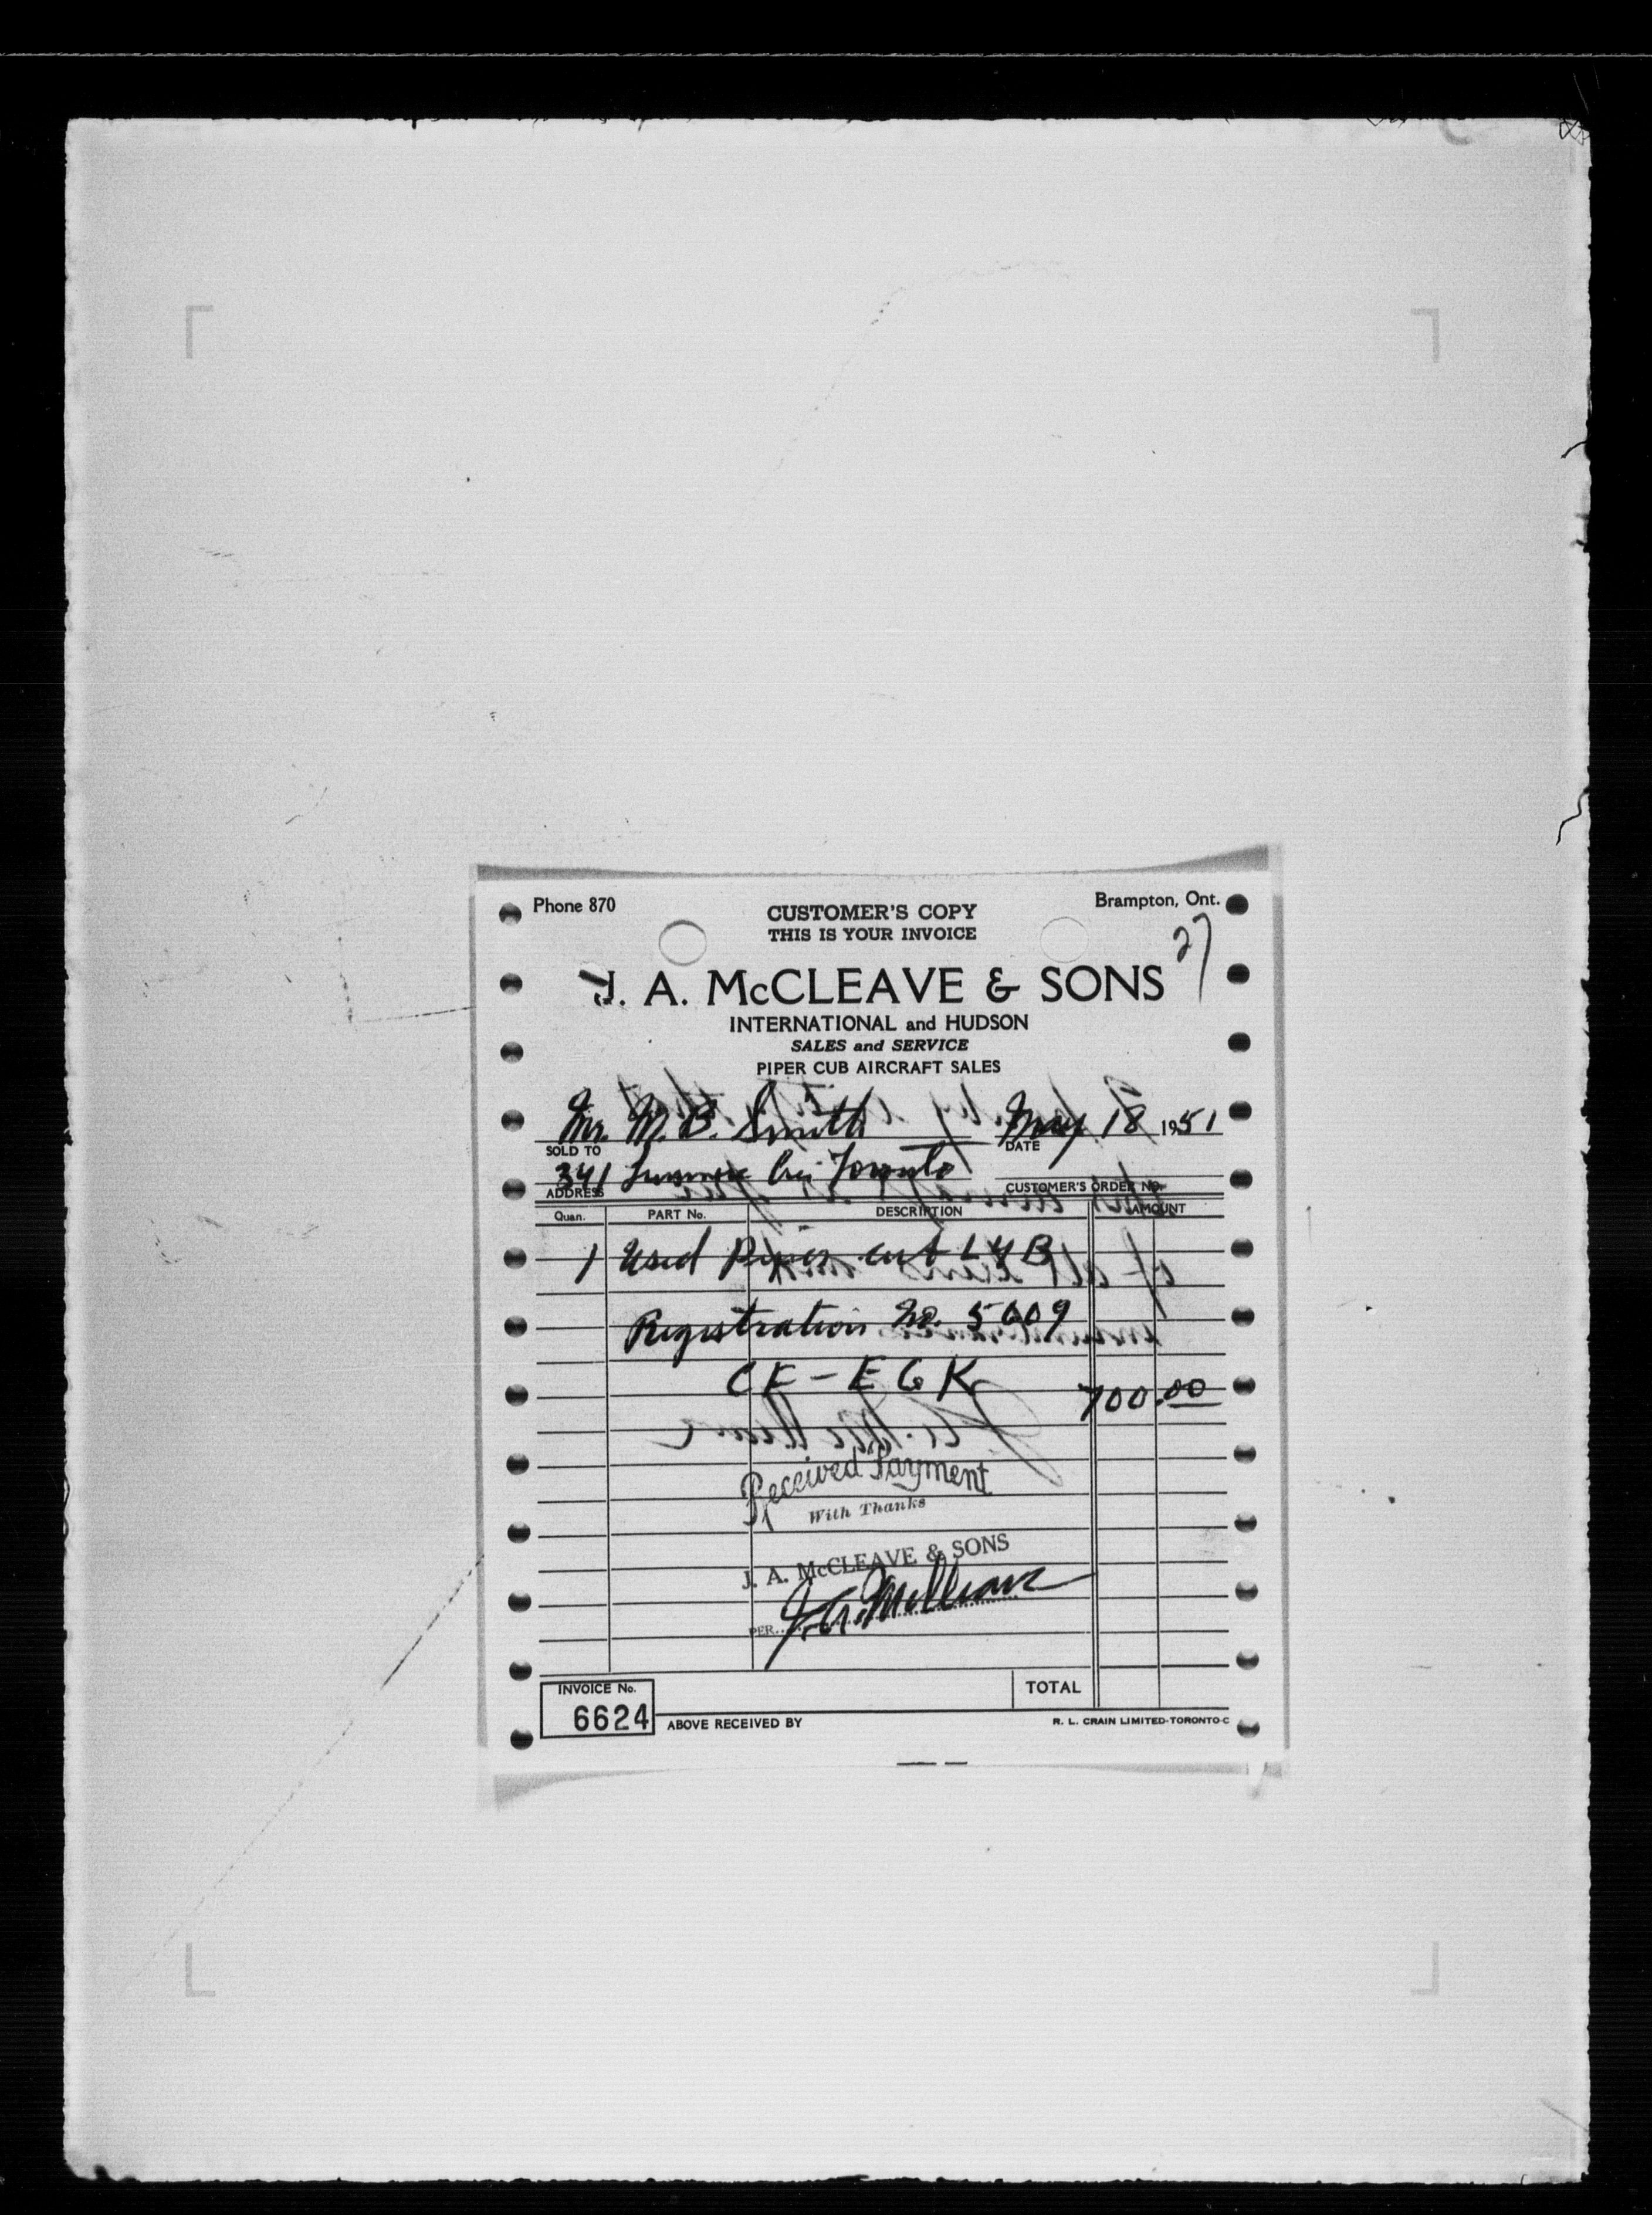 Phone 870
CUSTOMER'S COPY
Brampton, Ont.
THIS IS YOUR INVOICE
27
J. A. McCLEAVE & SONS
INTERNATIONAL and HUDSON
SALES and SERVICE
PIPER CUB AIRCRAFT SALES
Mr. M. B. Smith May 18 1951
SOLD TO DATE
341 Toronto
ADDRESS CUSTOMER'S ORDER No.
Quan. PART No. DESCRIPTION AMOUNT
1 Used Piper cub L4B
Registration No. 5609
CF-EGK 700.00
Received Payment
With Thanks
J. A. McCLEAVE & SONS
PER... J. A. McCleave
INVOICE No. TOTAL
6624 ABOVE RECEIVED BY R. L. CRAIN LIMITED-TORONTO-C